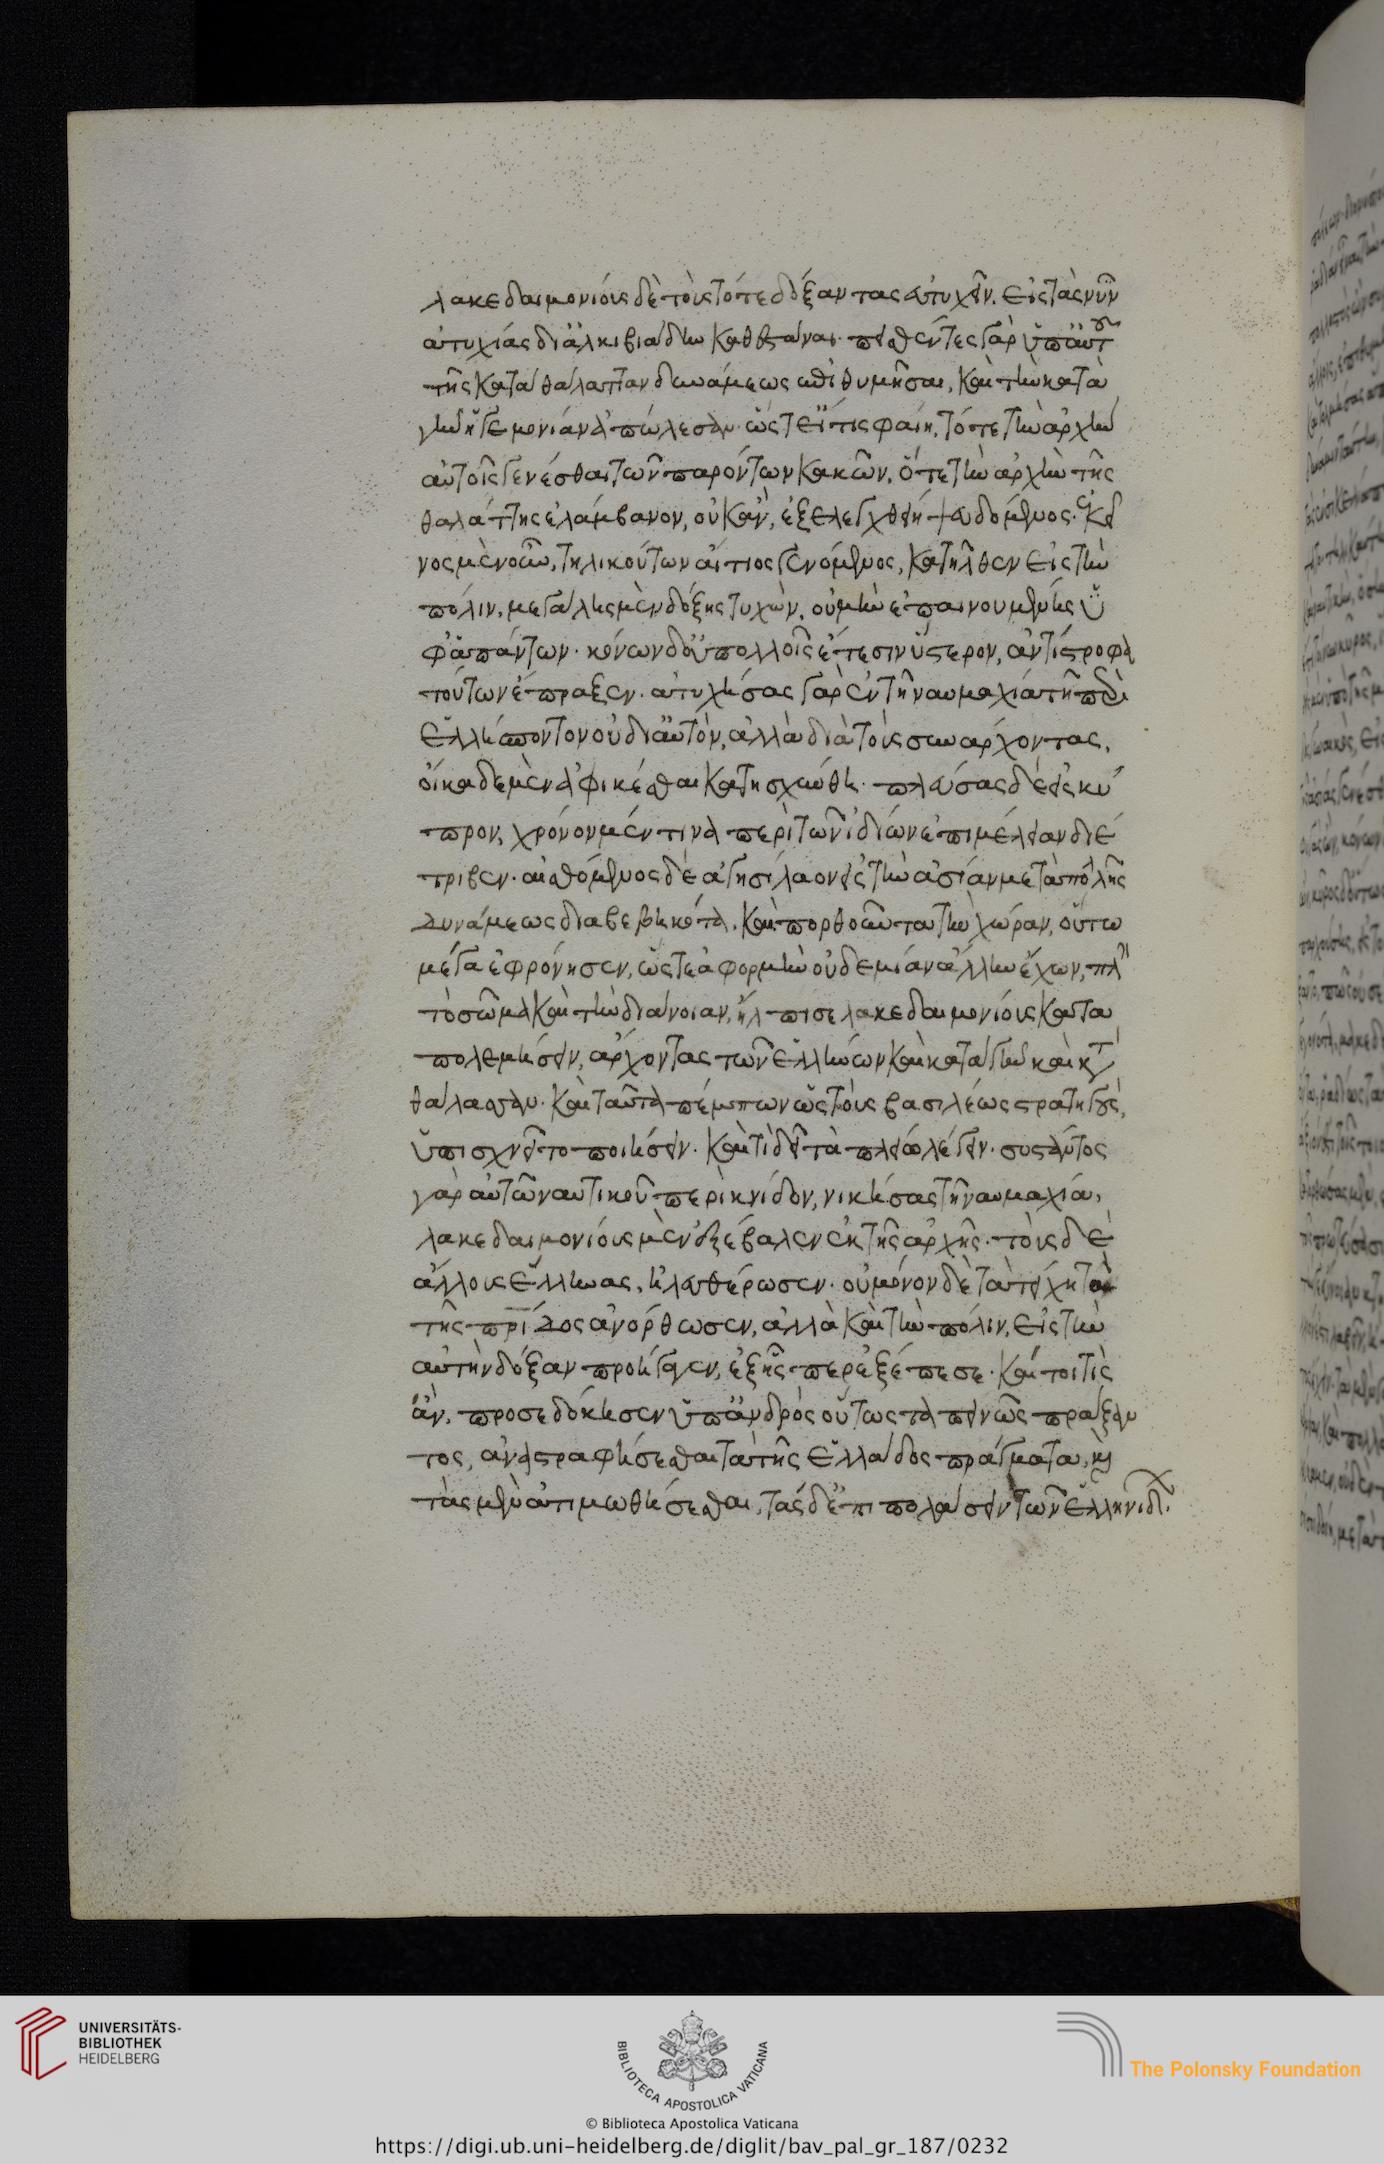 λακεδαιμονίους δὲ τοὺς τότε δόξαντας εὐτυχεῖν, εἰς τὰς νῦν
ἀτυχίας δι᾽ ἀλκιβιάδην καθεστάναι. πεισθέντες γὰρ ὑπ᾽ αὐτοῦ
τῆς κατὰ θάλατταν δυνάμεως ἐπιθυμῆσαι, καὶ τὴν κατὰ
γῆν ἡγεμονίαν ἀπώλεσαν. ὥστε εἴ τις φαίη, τότε τὴν ἀρχὴν
αὐτοῖς γενέσθαι τῶν παρόντων κακῶν, ὅτε τὴν ἀρχὴν τῆς
θαλάττης ἐλάμβανον, οὐκ ἂν, ἐξελεγχθείη ψευδόμενος. ἐκεῖ
νος μὲν οὖν, τηλικούτων αἴτιος γενόμενος, κατῆλθεν εἰς τὴν
πόλιν, μεγάλης μὲν δόξης τυχὼν, οὐ μὴν ἐπαινουμένης ὑ
φ᾽ ἁπάντων. κόνων δ᾽ οὐ πολλοῖς ἔτεσιν ὕστερον, ἀντίστροφα
τούτων ἔπραξεν. ἀτυχήσας γὰρ ἐν τῇ ναυμαχίᾳ τῇ περὶ
ἑλλήσποντον οὐ δι᾽ αὑτὸν, ἀλλὰ διὰ τοὺς συνάρχοντας,
οἴκαδε μὲν ἀφικέσθαι κατῃσχύνθη. πλεύσας δὲ εἰς κύ
προν, χρόνον μέν τινα περὶ τῶν ἰδίων ἐπιμέλειαν διέ
τριβεν. αἰσθόμενος δὲ ἀγησίλαον εἰς τὴν ἀσίαν μετὰ πολλῆς
δυνάμεως διαβεβηκότα, καὶ πορθοῦντα τὴν χώραν, οὕτω
μέγα ἐφρόνησεν, ὥστε ἀφορμὴν οὐδεμίαν ἄλλην ἔχων, πλὴν
τὸ σῶμα καὶ τὴν διάνοιαν, ἤλπισε λακεδαιμονίους κατα
πολεμήσειν, ἄρχοντας τῶν ἑλλήνων καὶ κατὰ γῆν καὶ κατὰ
θάλασσαν. καὶ ταῦτα πέμπων ὡς τοὺς βασιλέως στρατηγοὺς,
ὑπισχνεῖτο ποιήσειν. καὶ τί δεῖ τὰ πλείω λέγειν. συστάντος
γὰρ αὐτῷ ναυτικοῦ περὶ κνίδον, νικήσας τῇ ναυμαχίᾳ,
λακεδαιμονίους μὲν ἐξέβαλεν ἐκ τῆς ἀρχῆς. τοὺς δὲ
ἄλλους ἕλληνας, ἠλευθέρωσεν. οὐ μόνον δὲ τὰ τείχη τὰ
τῆς πρίδος ἀνόρθωσεν, ἀλλὰ καὶ τὴν πόλιν, εἰς τὴν
αὐτὴν δόξαν προήγαγεν, ἐξ ἧσπερ ἐξέπεσε. καί τοι τίς
ἂν, προσεδόκησεν ὑπ᾽ ἀνδρὸς οὕτως ταπεινῶς πράξαν
τος, ἀναστραφήσεσθαι τὰ τῆς ἑλλάδος πράγματα, καὶ
τὰς μὲν ἀτιμωθήσεσθαι, τὰς δ᾽ ἐπιπολάσειν τῶν ἑλληνίδων.
UNIVERSITÄTS-
BIBLIOTHEK
HEIDELBERG
BIBLIOTECA APOSTOLICA VATICANA
The Polonsky Foundation
© Biblioteca Apostolica Vaticana
https://digi.ub.uni-heidelberg.de/diglit/bav_pal_gr_187/0232